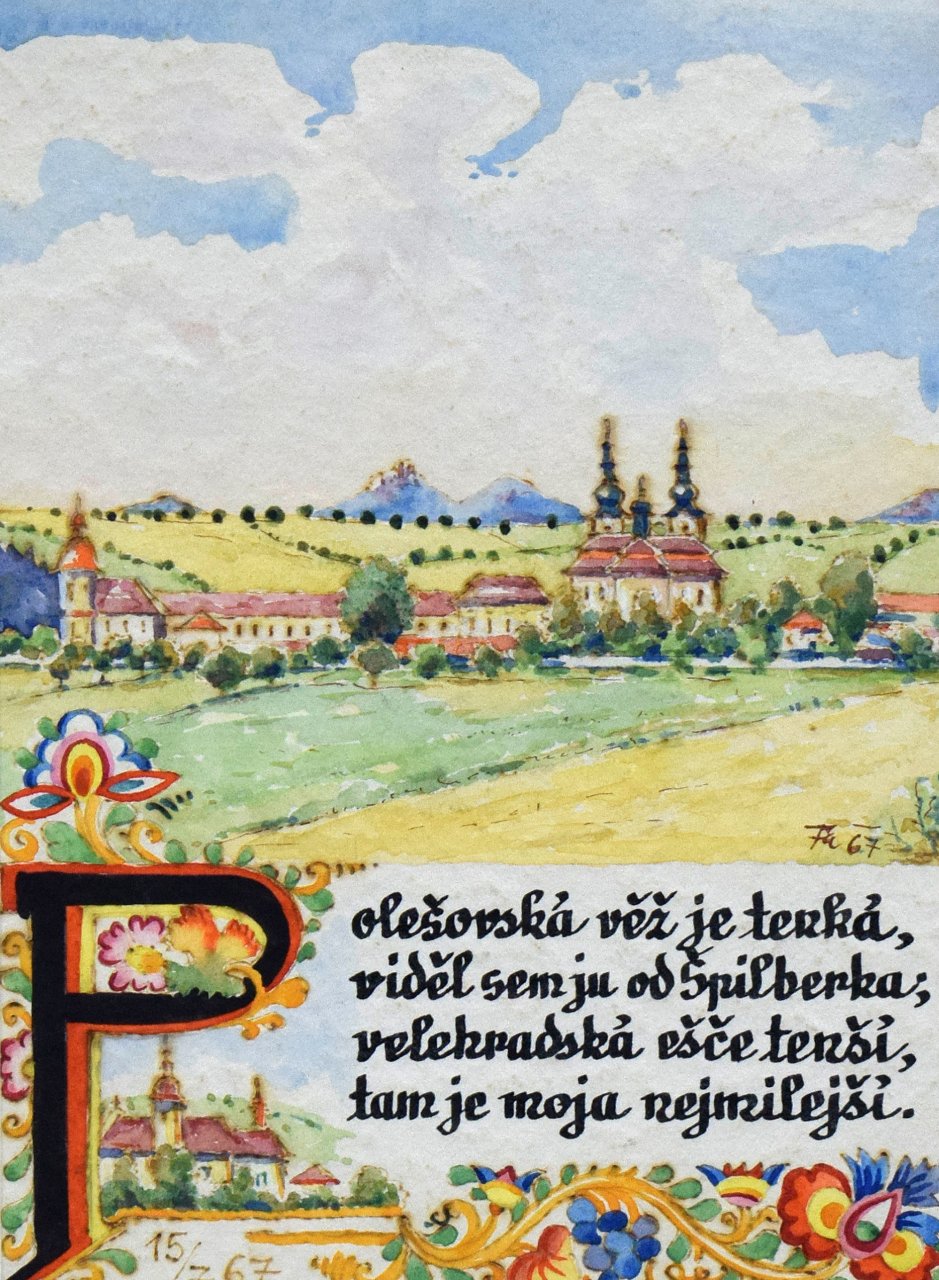 67
Polešovská věž je tenká,
viděl sem ju od Špilberka;
velehradská ešče tenší,
tam je moja nejmilejší.
15/7 67